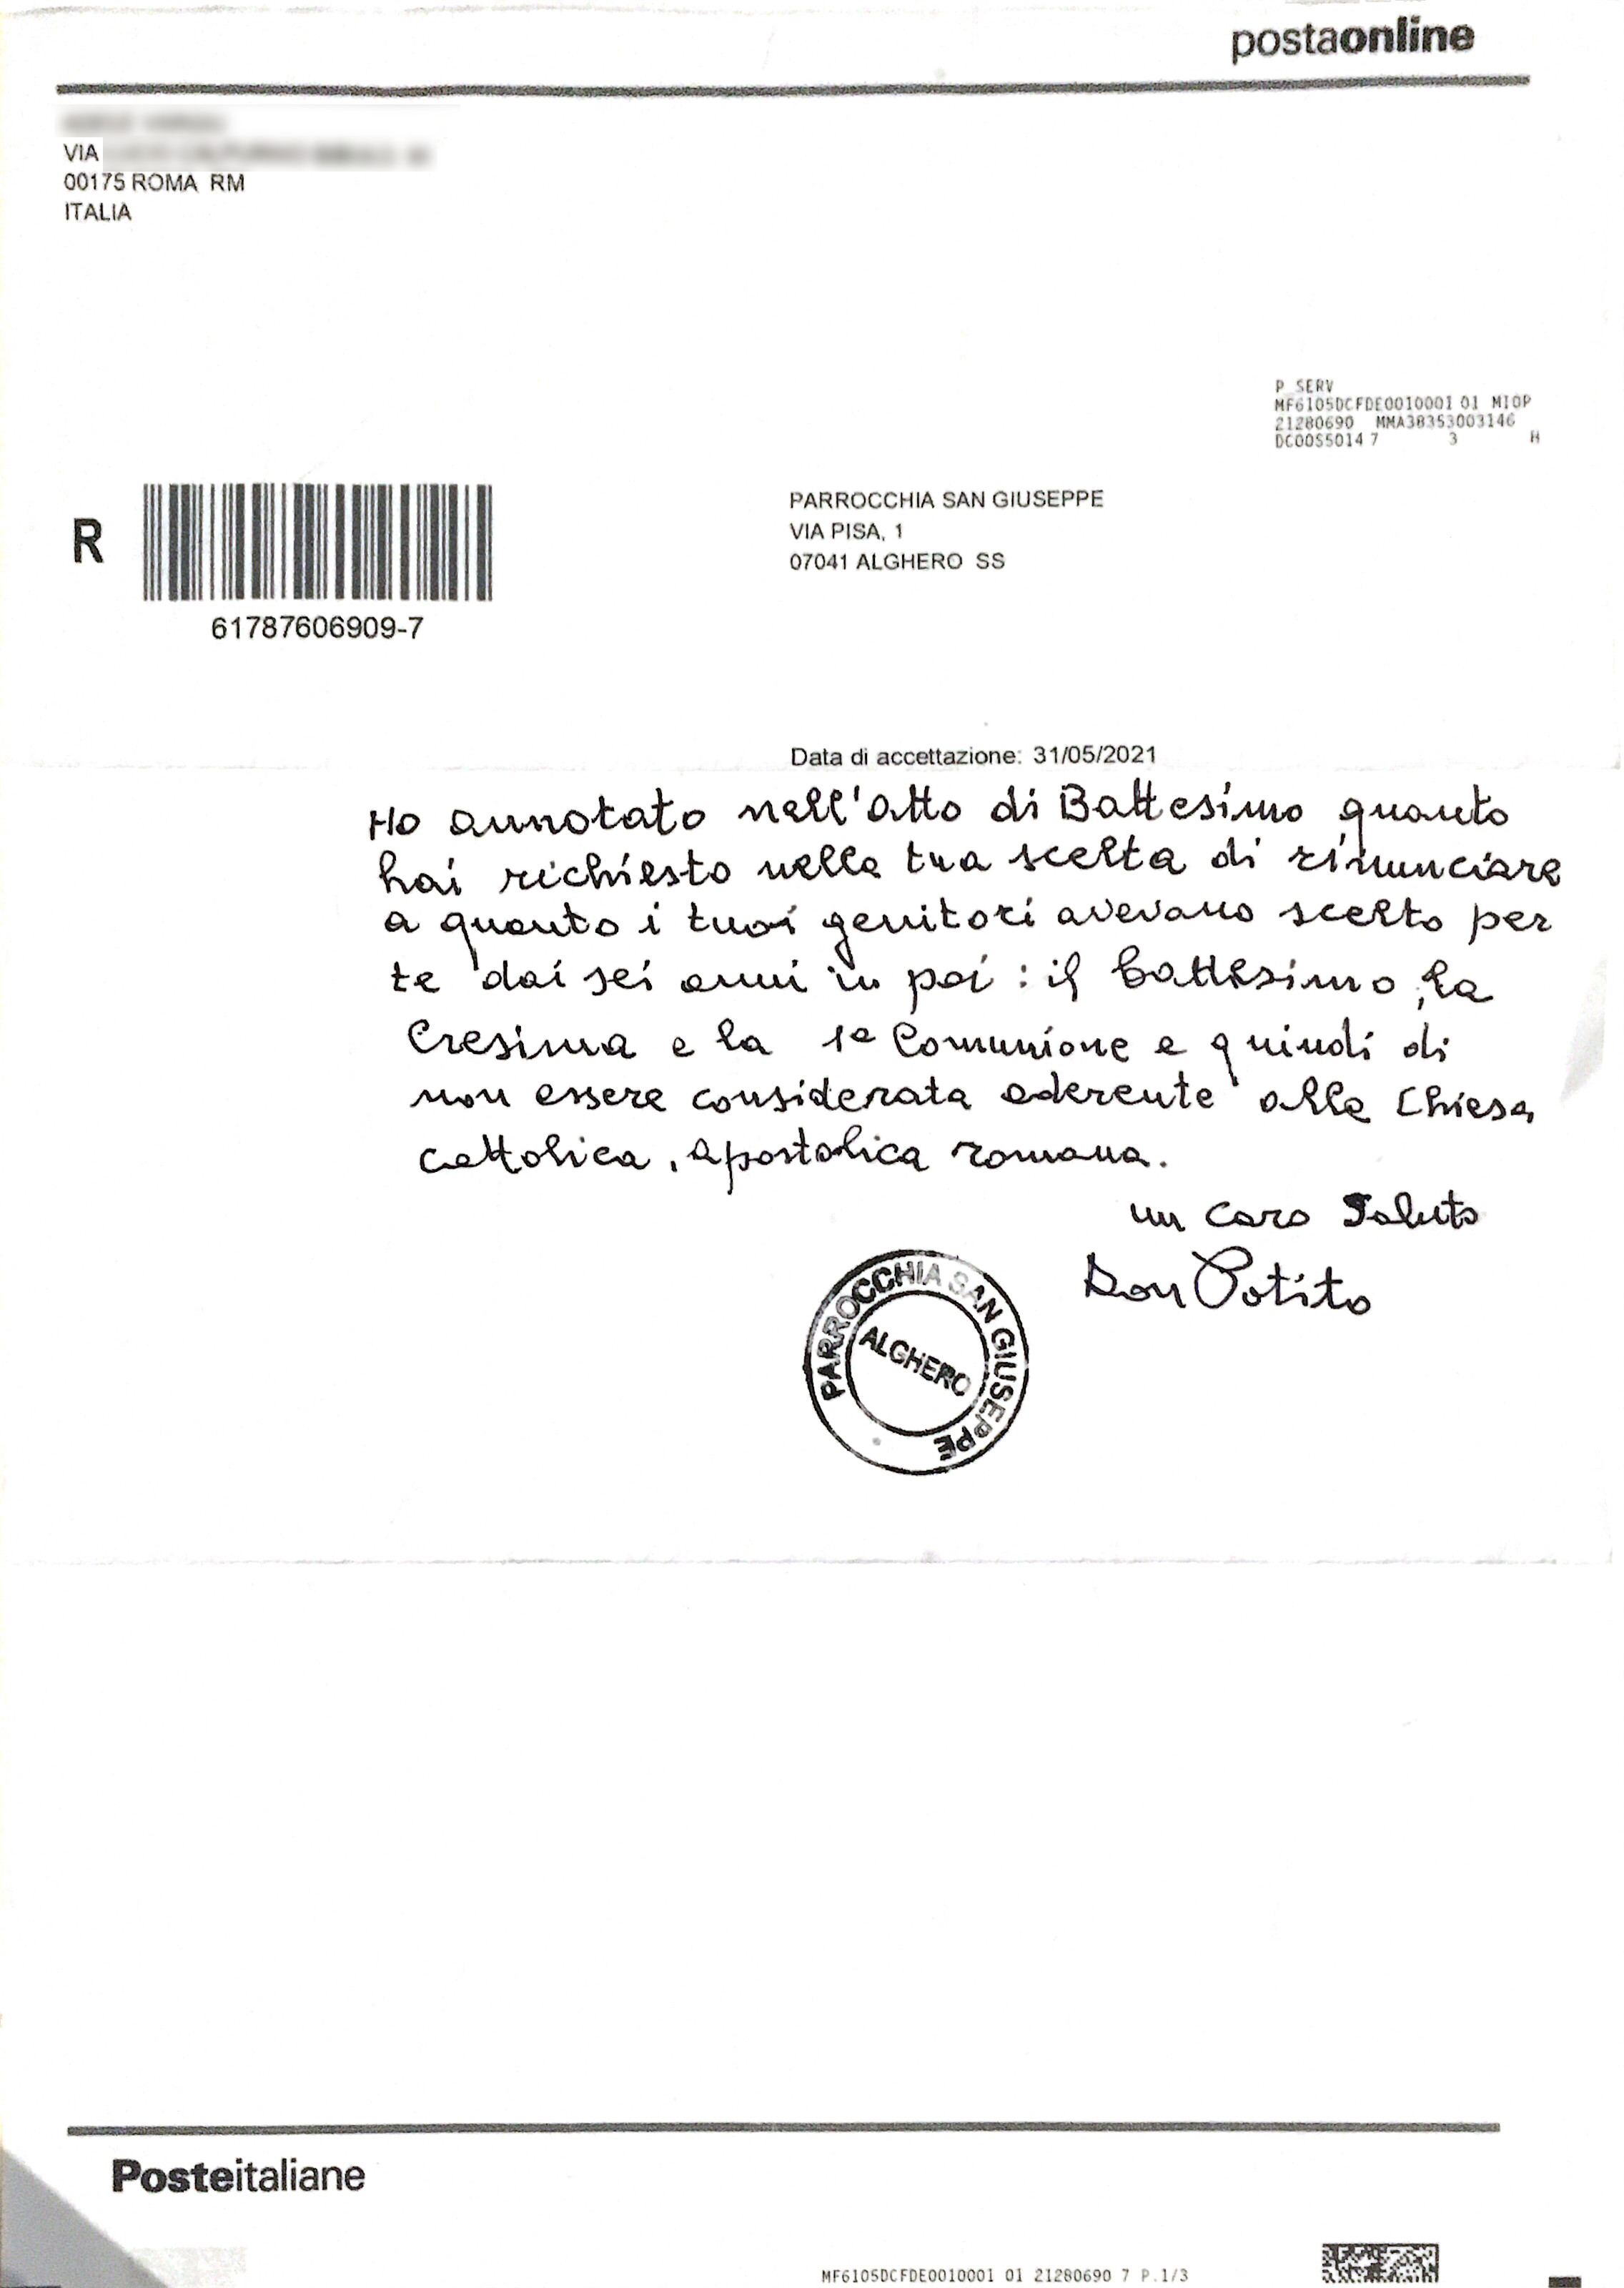 postaonline
VIA
00175 ROMA RM
ITALIA
P_SERV
MF6105DCFDE0010001 01 MIOP
21280690 MMA38353003146
DC00S5014 7 3 H
R
61787606909-7
PARROCCHIA SAN GIUSEPPE
VIA PISA, 1
07041 ALGHERO SS
Data di accettazione: 31/05/2021
Ho annotato nell'atto di Battesimo quanto
hai richiesto nella tua scelta di rinunciare
a quanto i tuoi genitori avevano scelto per
te dai sei anni in poi : il battesimo, la
Cresima e la 1ª Comunione e quindi di
non essere considerata aderente alla Chiesa
Cattolica, apostolica romana.
un caro Saluto
Don Potito
PARROCCHIA SAN GIUSEPPE
ALGHERO
Posteitaliane
MF6105DCFDE0010001 01 21280690 7 P.1/3